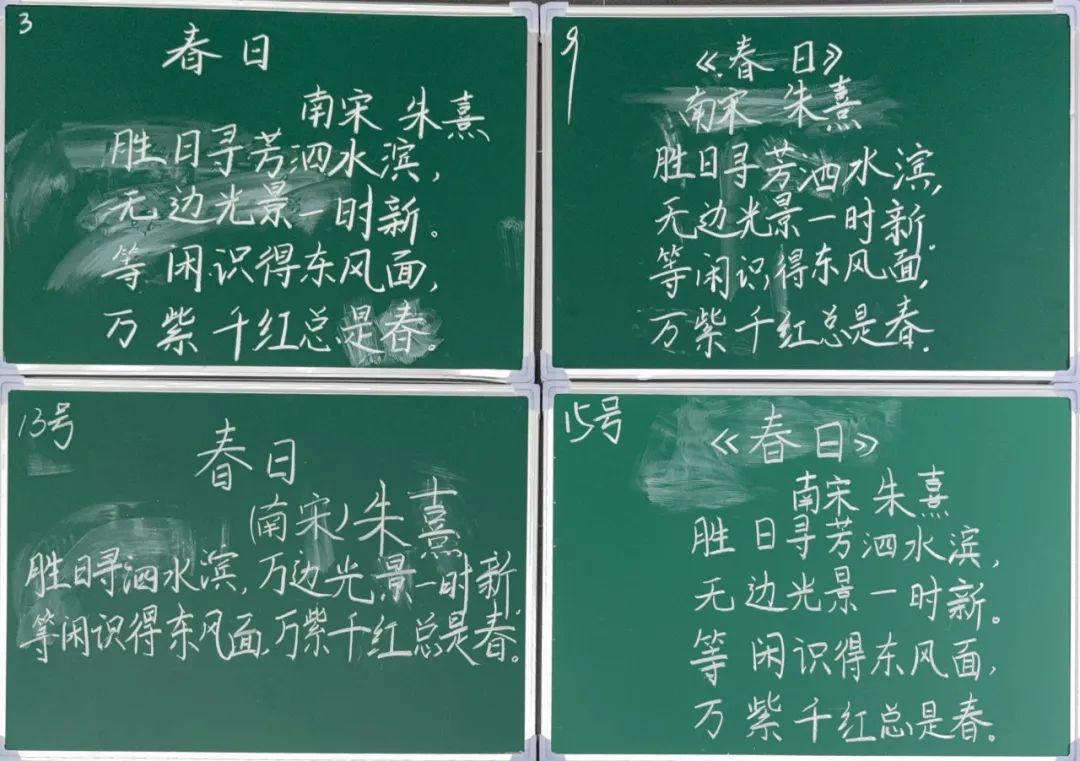 3
春日
南宋 朱熹
胜日寻芳泗水滨，
无边光景一时新。
等闲识得东风面，
万紫千红总是春。
9
《春日》
南宋 朱熹
胜日寻芳泗水滨，
无边光景一时新.
等闲识得东风面，
万紫千红总是春.
13号
春日
(南宋)朱熹
胜日寻泗水滨，万边光景一时新.
等闲识得东风面，万紫千红总是春。
15号
《春日》
南宋 朱熹
胜日寻芳泗水滨，
无边光景一时新。
等闲识得东风面，
万紫千红总是春。